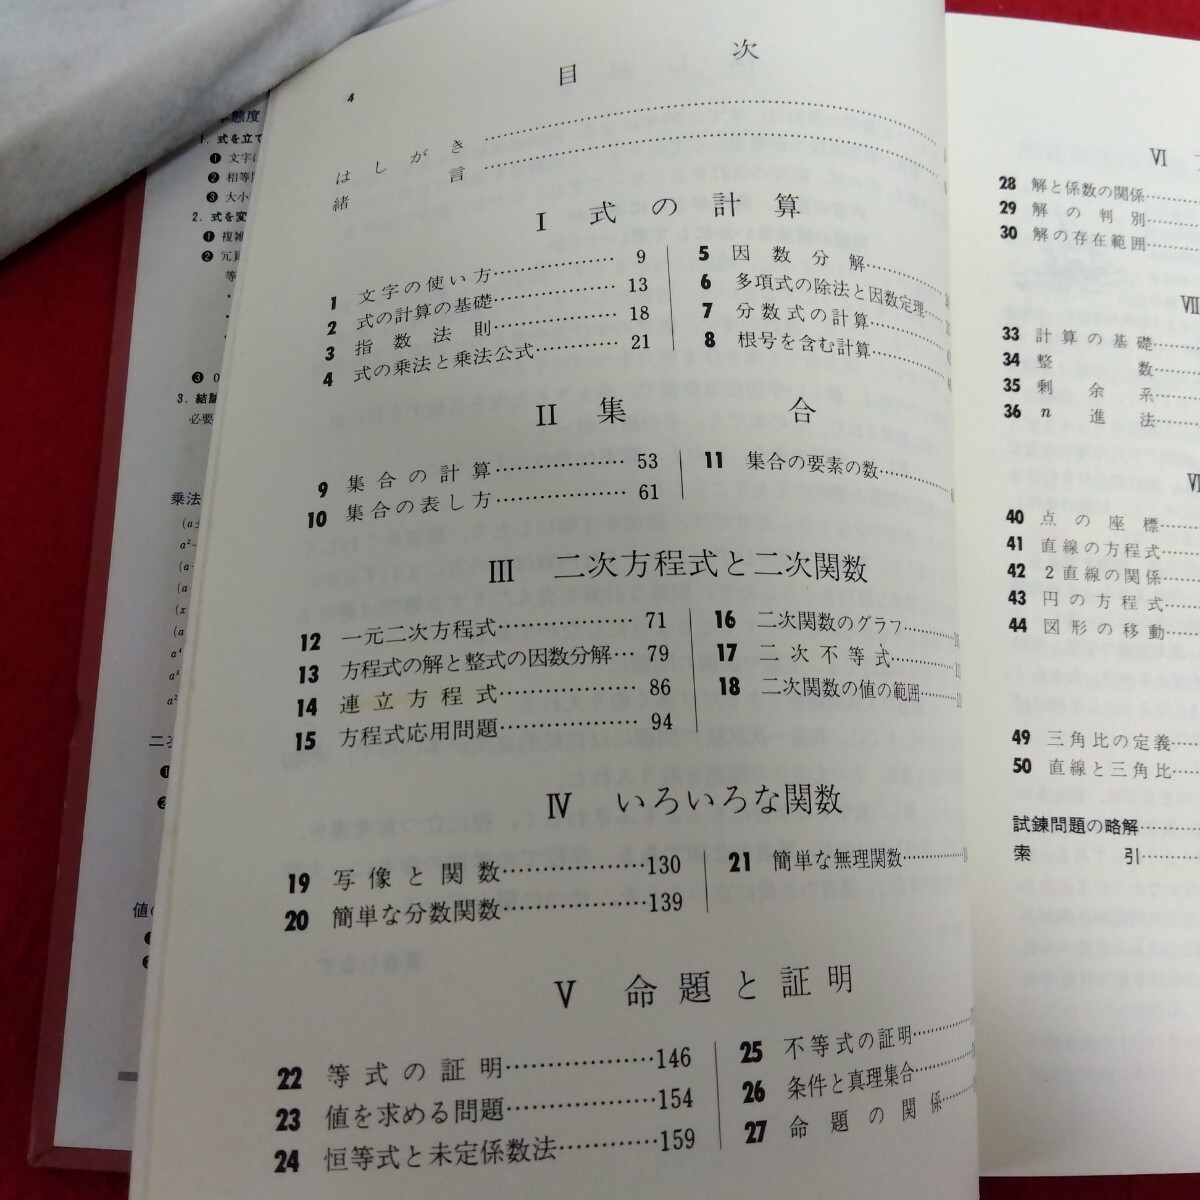 目 次
4
はしがき
緒言
I 式の計算
1 文字の使い方 9
2 式の計算の基礎 13
3 指数法則 18
4 式の乗法と乗法公式 21
5 因数分解
6 多項式の除法と因数定理
7 分数式の計算
8 根号を含む計算
II 集合
9 集合の計算 53
10 集合の表し方 61
11 集合の要素の数
III 二次方程式と二次関数
12 一元二次方程式 71
13 方程式の解と整式の因数分解 79
14 連立方程式 86
15 方程式応用問題 94
16 二次関数のグラフ
17 二次不等式
18 二次関数の値の範囲
IV いろいろな関数
19 写像と関数 130
20 簡単な分数関数 139
21 簡単な無理関数
V 命題と証明
22 等式の証明 146
23 値を求める問題 154
24 恒等式と未定係数法 159
25 不等式の証明
26 条件と真理集合
27 命題の関係
VI
28 解と係数の関係
29 解の判別
30 解の存在範囲
VII
33 計算の基礎
34 整数
35 剰余系
36 n進法
40 点の座標
41 直線の方程式
42 2直線の関係
43 円の方程式
44 図形の移動
49 三角比の定義
50 直線と三角比
試錬問題の略解
索引
態度
1. 式を立て
❶ 文字
❷ 相等
❸ 大小
2. 式を変
❶ 複雑
❷ 冗
等
❸ 0
3. 結
必要
乗法
二次